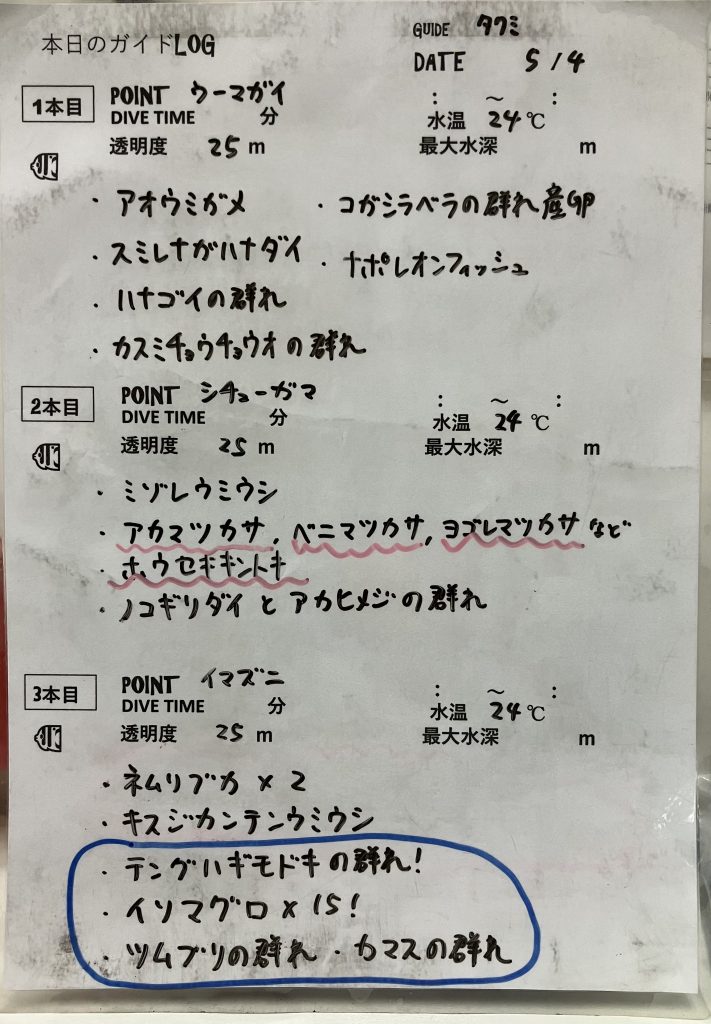 本日のガイドLOG
GUIDE タクミ
DATE 5/4
1本目 POINT ウーマガイ : ～ :
DIVE TIME 分 水温 24℃
透明度 25m 最大水深 m
・アオウミガメ ・コガシラベラの群れ産卵
・スミレナガハナダイ ・ナポレオンフィッシュ
・ハナゴイの群れ
・カスミチョウチョウオの群れ
2本目 POINT シチューガマ : ～ :
DIVE TIME 分 水温 24℃
透明度 25m 最大水深 m
・ミゾレウミウシ
・アカマツカサ, ベニマツカサ, ヨゴレマツカサなど
・ホウセキキントキ
・ノコギリダイとアカヒメジの群れ
3本目 POINT イマズニ : ～ :
DIVE TIME 分 水温 24℃
透明度 25m 最大水深 m
・ネムリブカ×2
・キスジカンテンウミウシ
・テングハギモドキの群れ!
・イソマグロ×15!
・ツムブリの群れ ・カマスの群れ